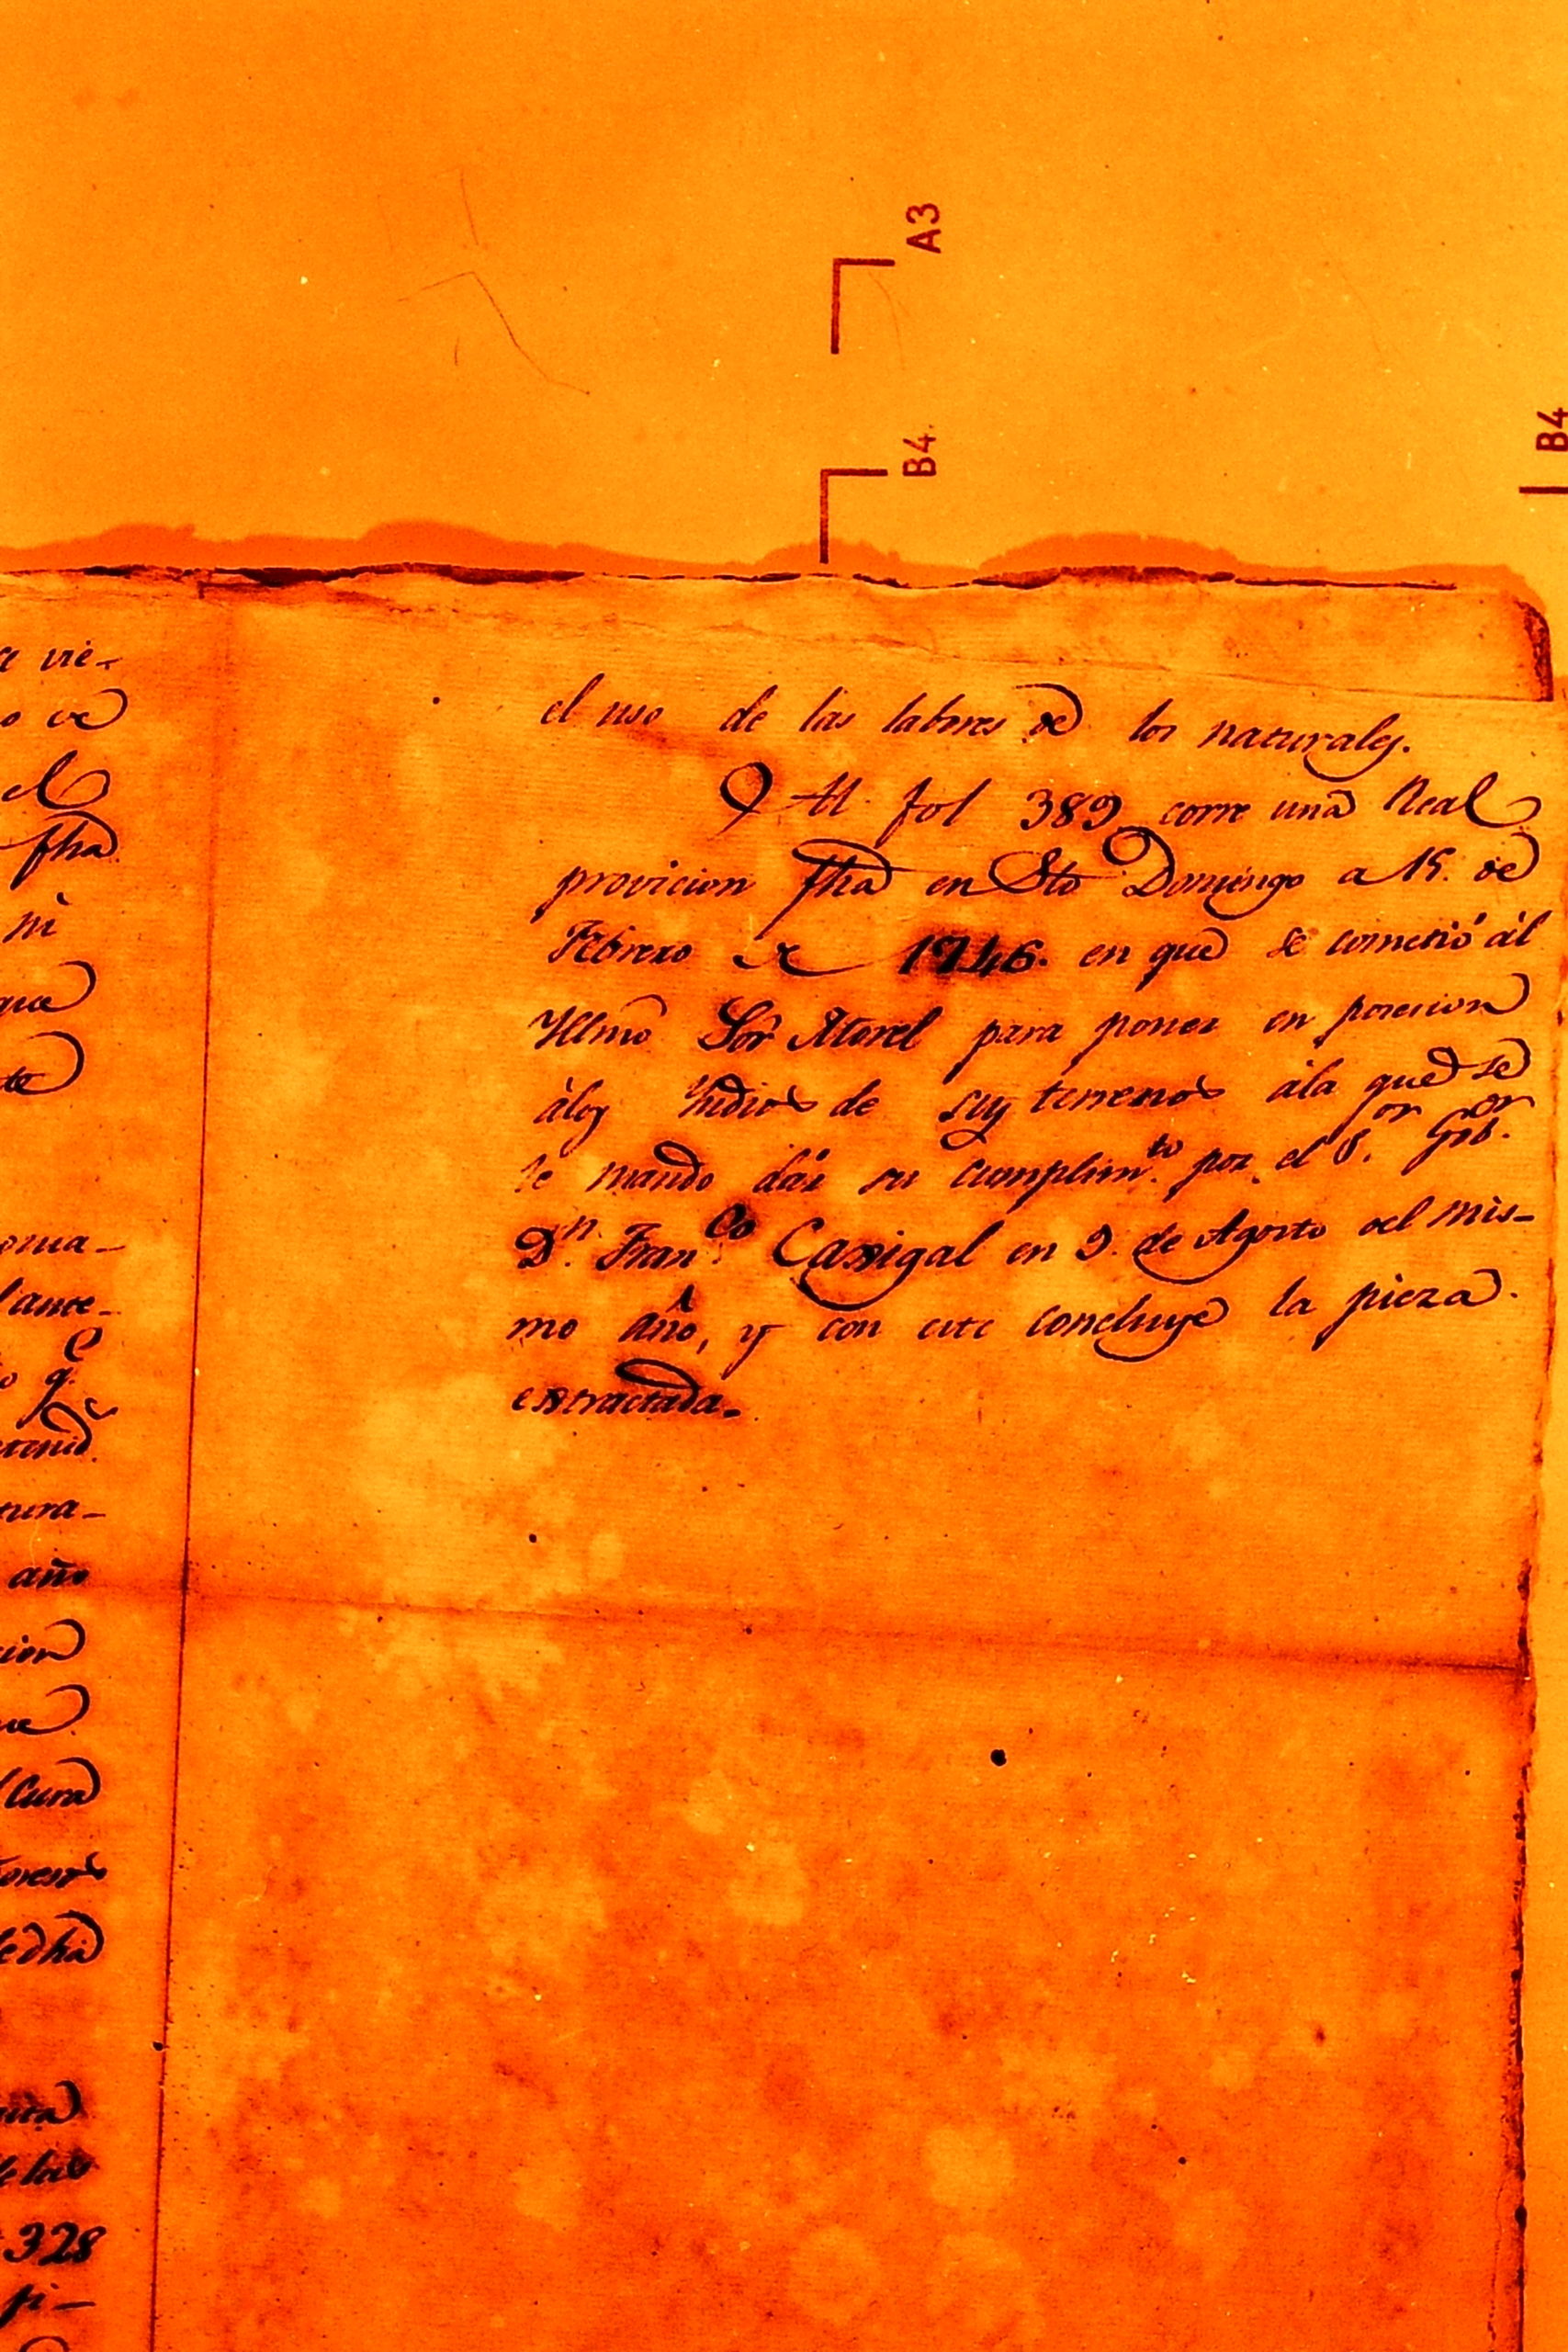 A3
B4
B4
a vie-
el
fha
ni
que
te
lante-
o q.e
tura-
año
cion
Cura
dha
de las
328
pi-
el uso de las labores de los naturales.
Al fol 389 corre una Real
provicion fha en Sto Domingo a 15. de
Febrero de 1746. en que se cometió ál
Yllmo Sór Morel para poner en posecion
álos Yndios de sus terrenos ála que se
le mandó dár su cumplim.to por el S.or Gob.or
D.n Fran.co Cassigal en 9. de Agosto del mis-
mo año, y con este concluye la pieza
extractada.